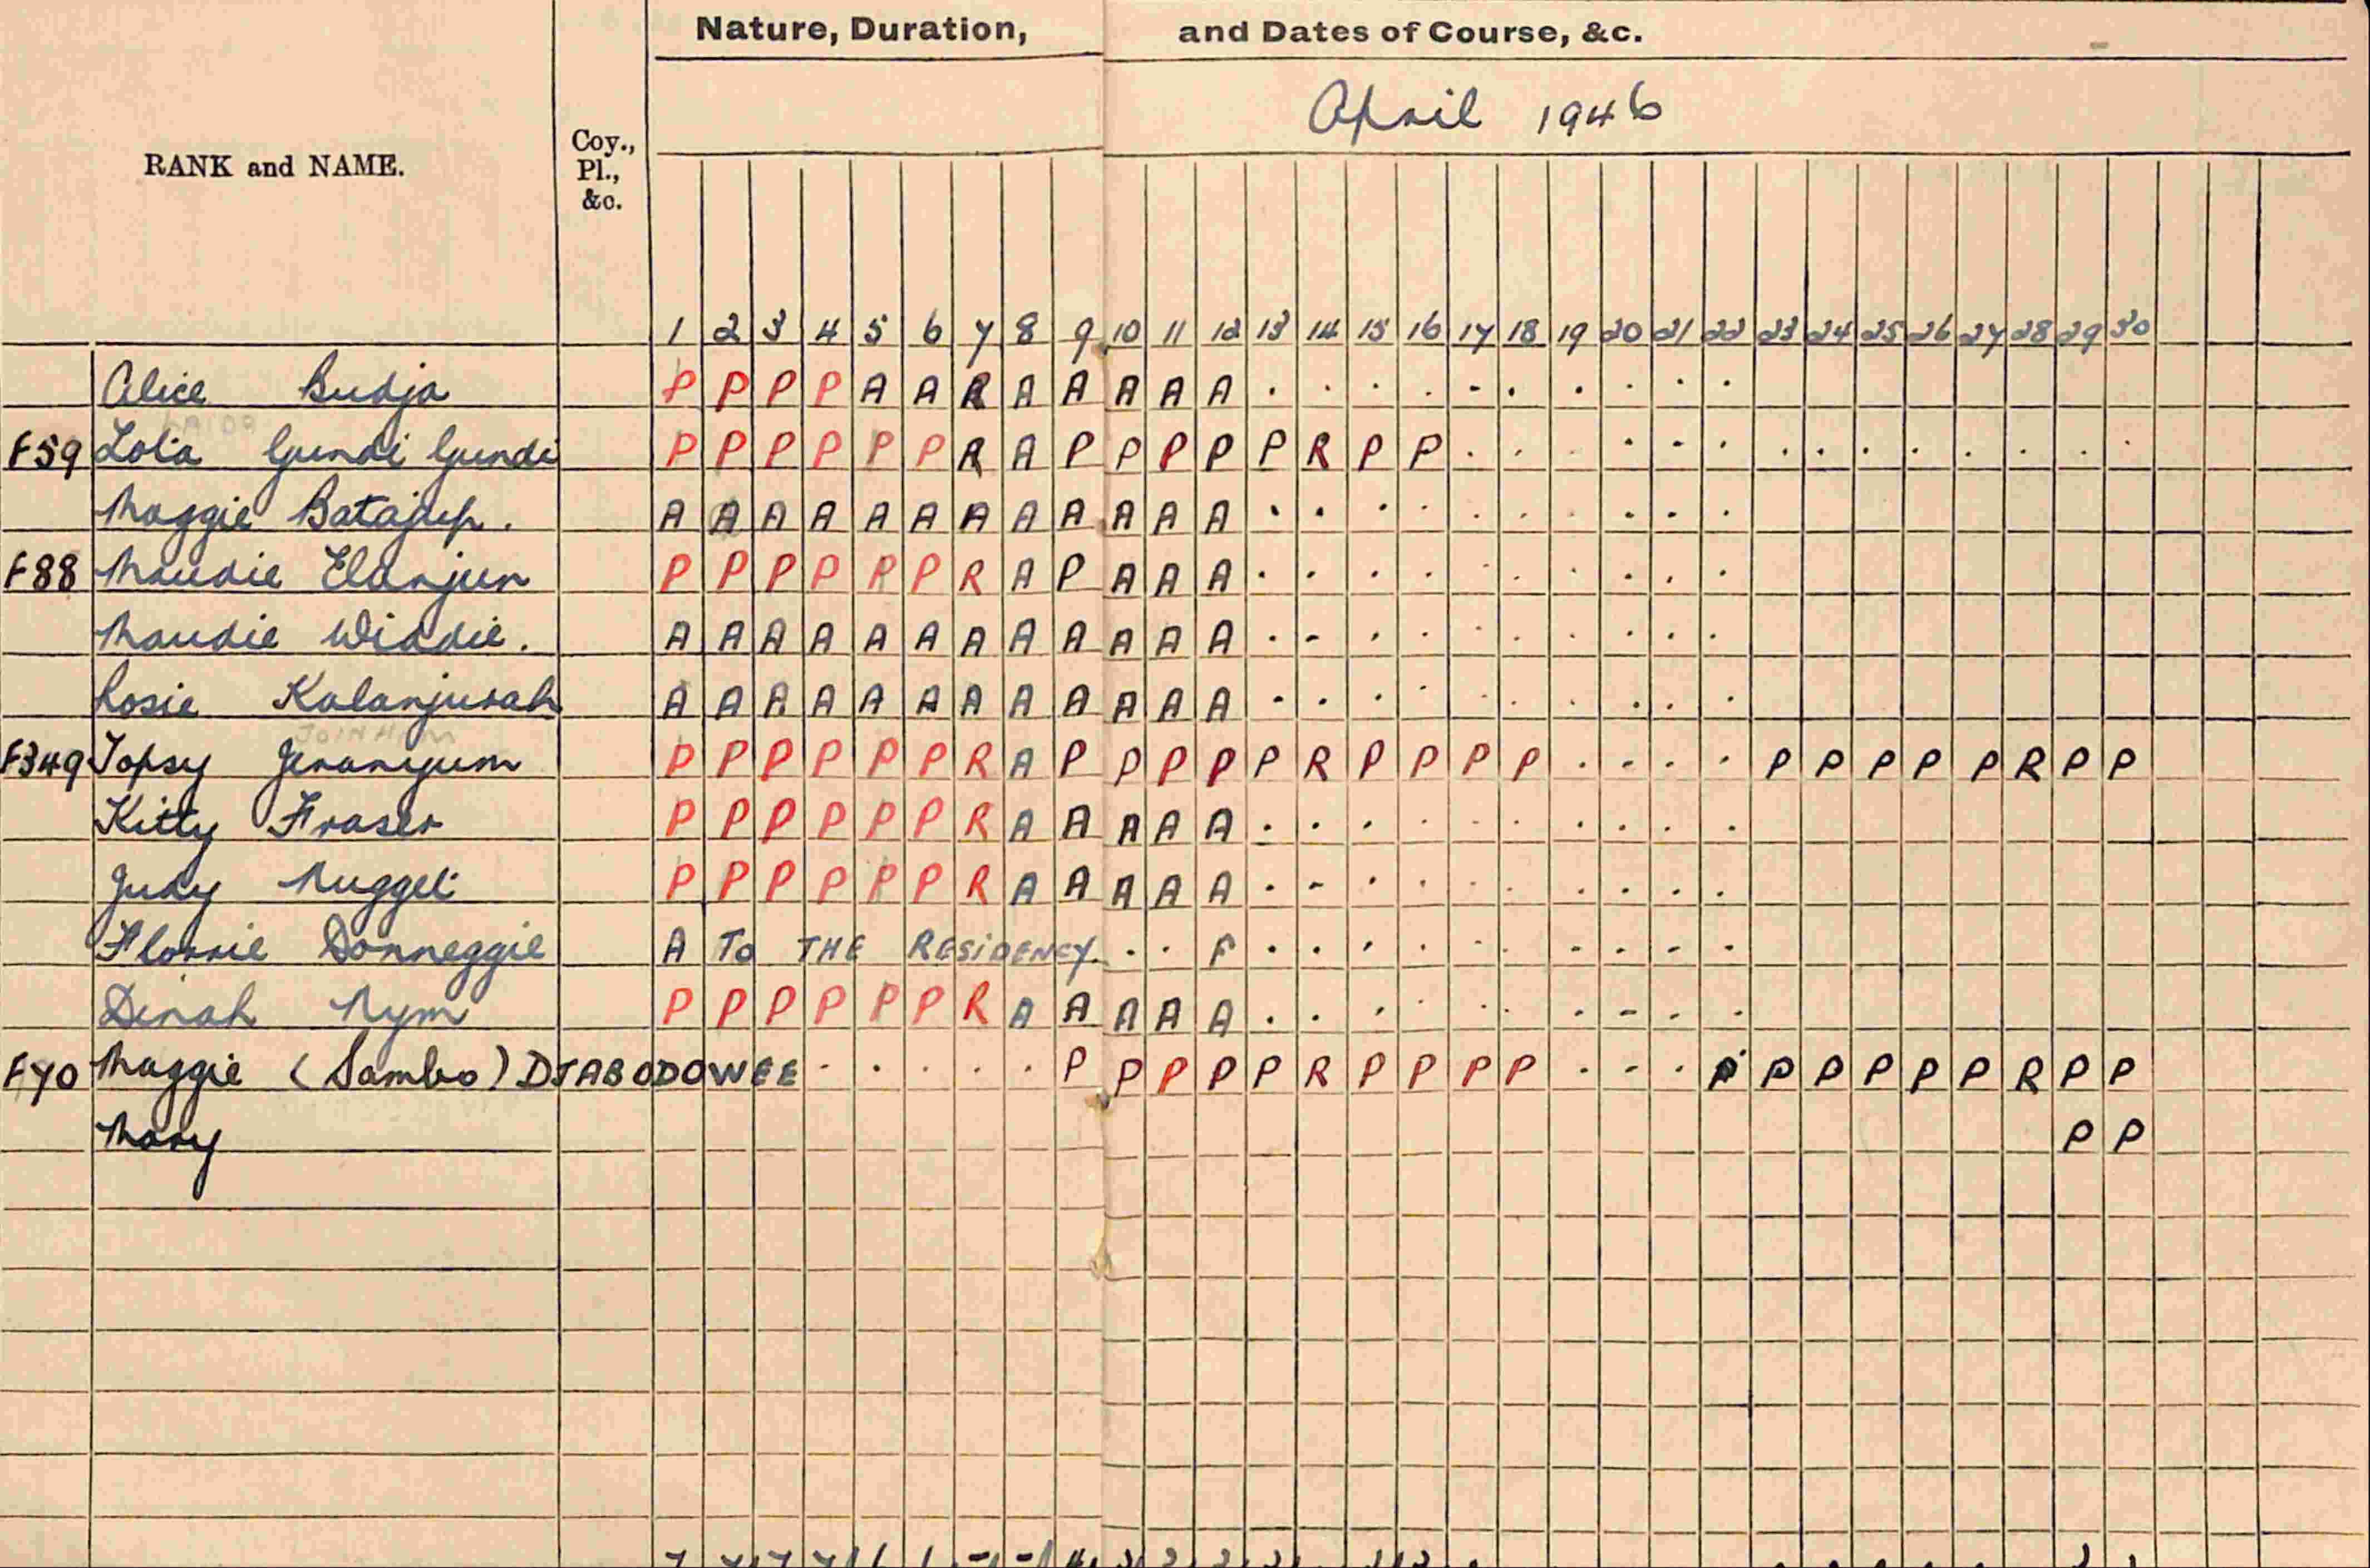 Nature, Duration, and Dates of Course, &c.
April 1946
RANK and NAME.
Coy., Pl., &c.
1 2 3 4 5 6 7 8 9 10 11 12 13 14 15 16 17 18 19 20 21 22 23 24 25 26 27 28 29 30
Alice Budja P P P P A A R A A A A A . . . . . . . . . .
F59 Lola Gundi Gundi P P P P P P R A P P P P P R P P . . . . . . . . . . . . .
Maggie Batajup. A A A A A A A A A A A A . . . . . . . . .
F88 Maudie Elanjun P P P P P P R A P A A A . . . . . . . . . .
Maudie Widdie. A A A A A A A A A A A A . - . . . . . . . .
Rosie Kalanjurah A A A A A A A A A A A A . . . . . . . . .
JOINHAM
F349 Topsy Jeranyum P P P P P P R A P P P P P R P P P P . . . . P P P P P R P P
Kitty Fraser P P P P P P R A A A A A . . . . . . . . . .
Judy Nugget P P P P P P R A A A A A . - . . . . . . . .
Florrie Donneggie A To THE RESIDENCY . . F . . . . . . . . . .
Dinah Nym P P P P P P R A A A A A . . . . . . - . .
F70 Maggie (Sambo) DJABODOWEE . . . . . P P P P P R P P P P . . . P P P P P P R P P
Mary P P